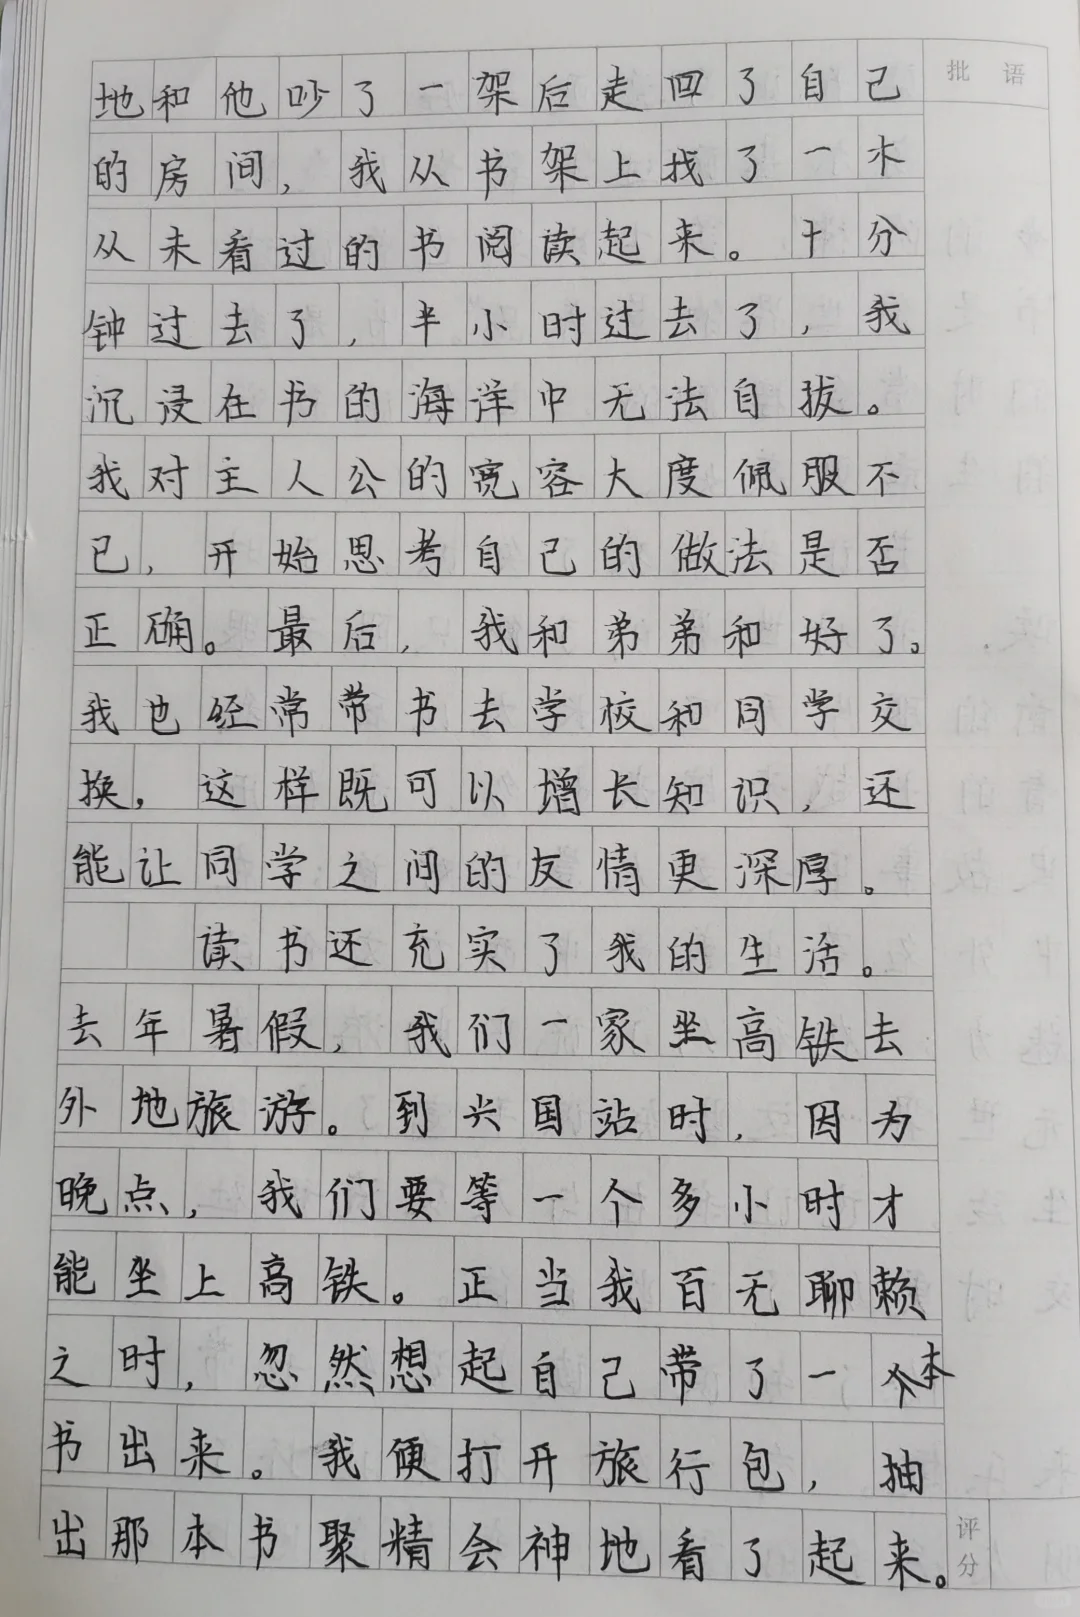 批语
地和他吵了一架后走回了自己
的房间，我从书架上找了一本
从未看过的书阅读起来。十分
钟过去了，半小时过去了，我
沉浸在书的海洋中无法自拔。
我对主人公的宽容大度佩服不
已，开始思考自己的做法是否
正确。最后，我和弟弟和好了。
我也经常带书去学校和同学交
换，这样既可以增长知识，还
能让同学之间的友情更深厚。
读书还充实了我的生活。
去年暑假，我们一家坐高铁去
外地旅游。到兴国站时，因为
晚点，我们要等一个多小时才
能坐上高铁。正当我百无聊赖
之时，忽然想起自己带了一本
书出来。我便打开旅行包，抽
出那本书聚精会神地看了起来。
评分